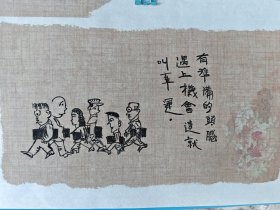 有準備的頭腦
遇上機會這就
叫幸運.